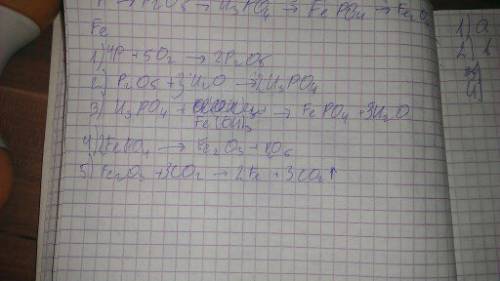 P → P2O5 → H3PO4 → FePO4 → Fe2O3
Fe
1) 4P + 5O2 → 2P2O5
2) P2O5 + 3H2O → 2H3PO4
3) H3PO4 + → FePO4 + 3H2O
Fe(OH)3
4) 2FePO4 → Fe2O3 +
5) Fe2O3 + 3CO2 → 2Fe + 3CO2↑
1) a
2.
3)
4)